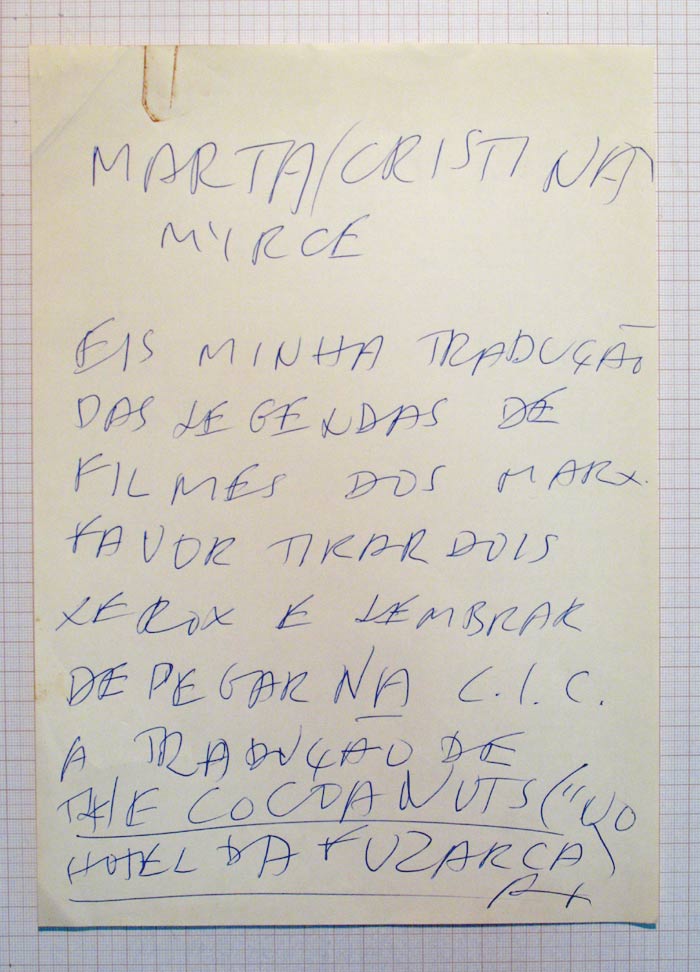 MARTA/CRISTINA
MYRCE
EIS MINHA TRADUÇÃO
DAS LEGENDAS DE
FILMES DOS MARX.
FAVOR TIRAR DOIS
XEROX E LEMBRAR
DE PEGAR NA C.I.C.
A TRADUÇÃO DE
THE COCOANUTS ("NO
HOTEL DA FUZARCA)